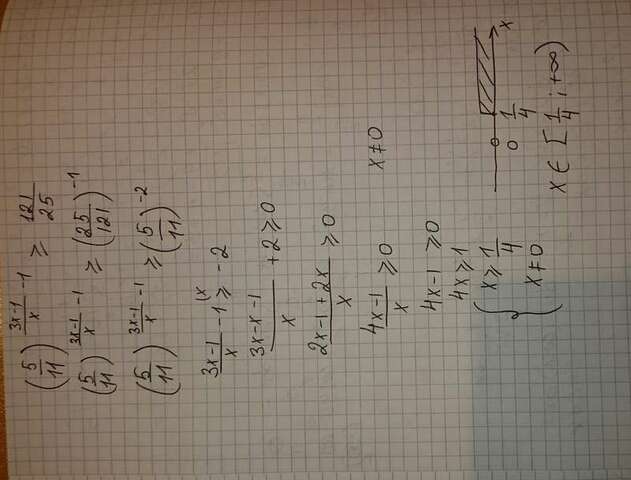 (5/11)^((3x-1)/x - 1) ≥ 121/25
(5/11)^((3x-1)/x - 1) ≥ (25/121)^(-1)
(5/11)^((3x-1)/x - 1) ≥ (5/11)^(-2)
(3x-1)/x - 1 (x ≥ -2
(3x-x-1)/x + 2 ≥ 0
(2x-1+2x)/x ≥ 0
(4x-1)/x ≥ 0 x ≠ 0
4x-1 ≥ 0
4x ≥ 1
{ x ≥ 1/4
x ≠ 0
0 1/4 x
x ∈ [1/4; +∞)